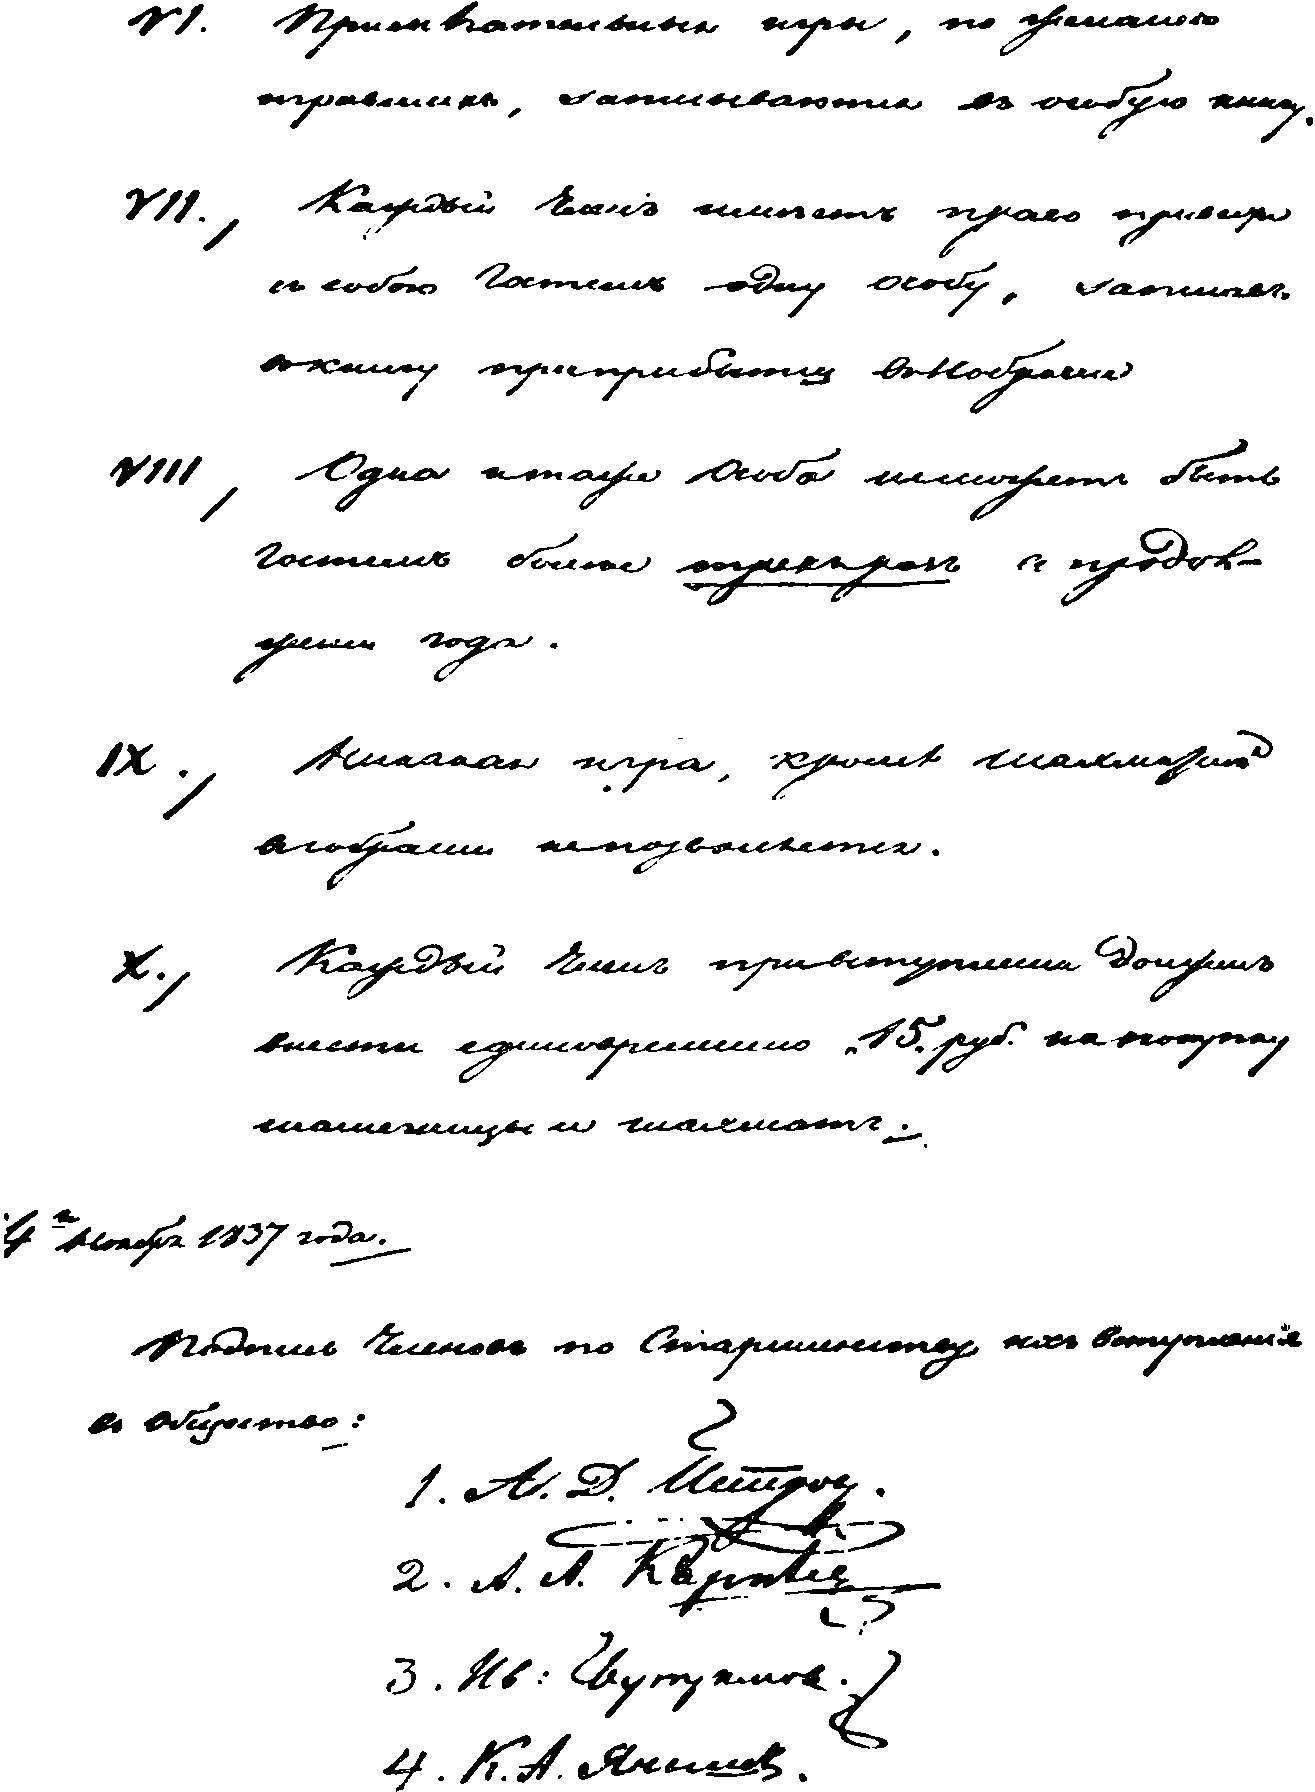 VI. Примѣчательныя игры, по желанію
игравшихъ, записываются въ особую книгу.
VII., Каждый Членъ имѣетъ право привести
съ собою Гостемъ одну особу, записавъ
въ книгу при прибытіи въ Собраніе
VIII, Одна и таже Особа неможетъ быть
Гостемъ более трехъ разъ в продол-
женіи года.
IX., Никакая игра, кромѣ шахматной
в собраніи непозволяется.
X., Каждый Членъ привступленіи Долженъ
внести единовременно "15" руб. на покупку
шашечницы и шахматъ.
4го Ноября 1837 года.
Подпись Членовъ по Старшинству ихъ вступленія
въ Общество:
1. А. Д. Петров.
2. А. А.
3. Ив:
4. К. А. Янишъ.